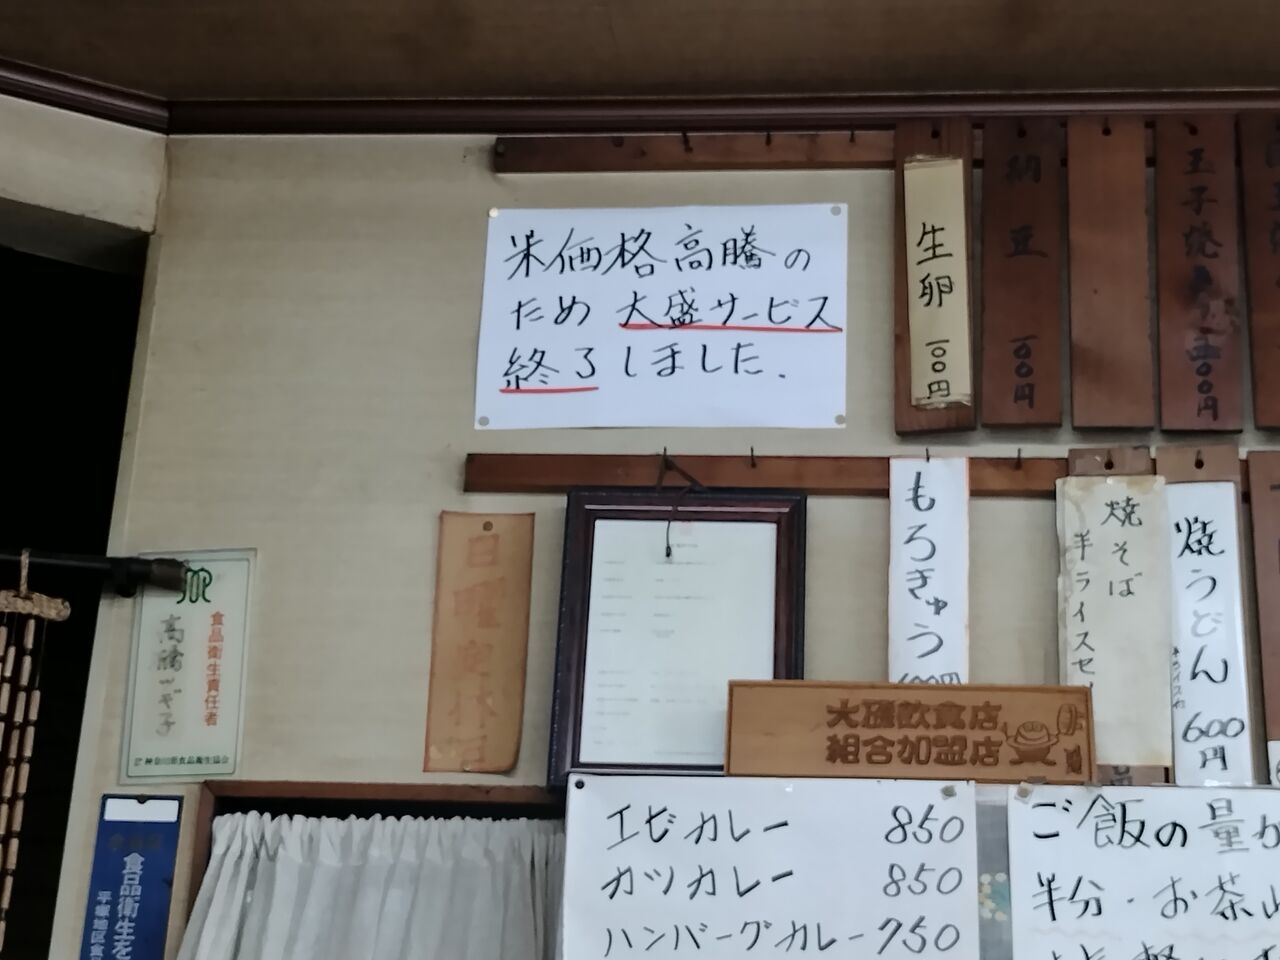 米価格高騰の
ため大盛サービス
終了しました.
生卵 一〇〇円
納豆 一〇〇円
玉子焼
もろきゅう
焼そば
半ライス
焼うどん
600円
日曜定休日
食品衛生責任者
大磯飲食店
組合加盟店
エビカレー 850
カツカレー 850
ハンバーグカレー 750
ご飯の量
半分・お茶
食品衛生を